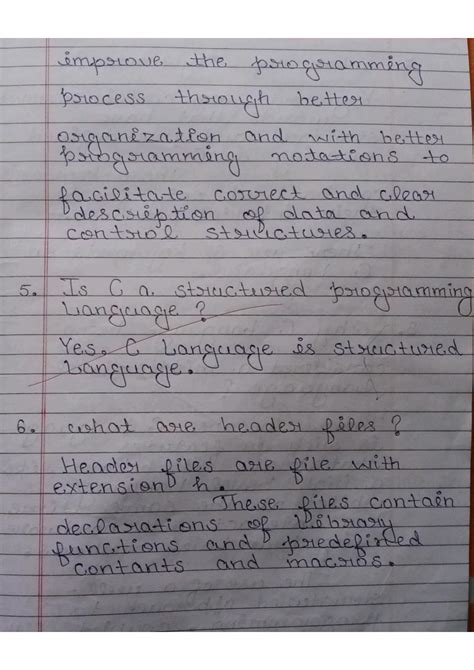 improve the programming
process through better
organization and with better
programming notations to
facilitate correct and clear
description of data and
control structures.
5. Is C a structured programming
Language ?
Yes, C Language is structured
Language.
6. what are header files ?
Header files are file with
extension h.
These files contain
declarations of library
functions and predefined
contants and macros.